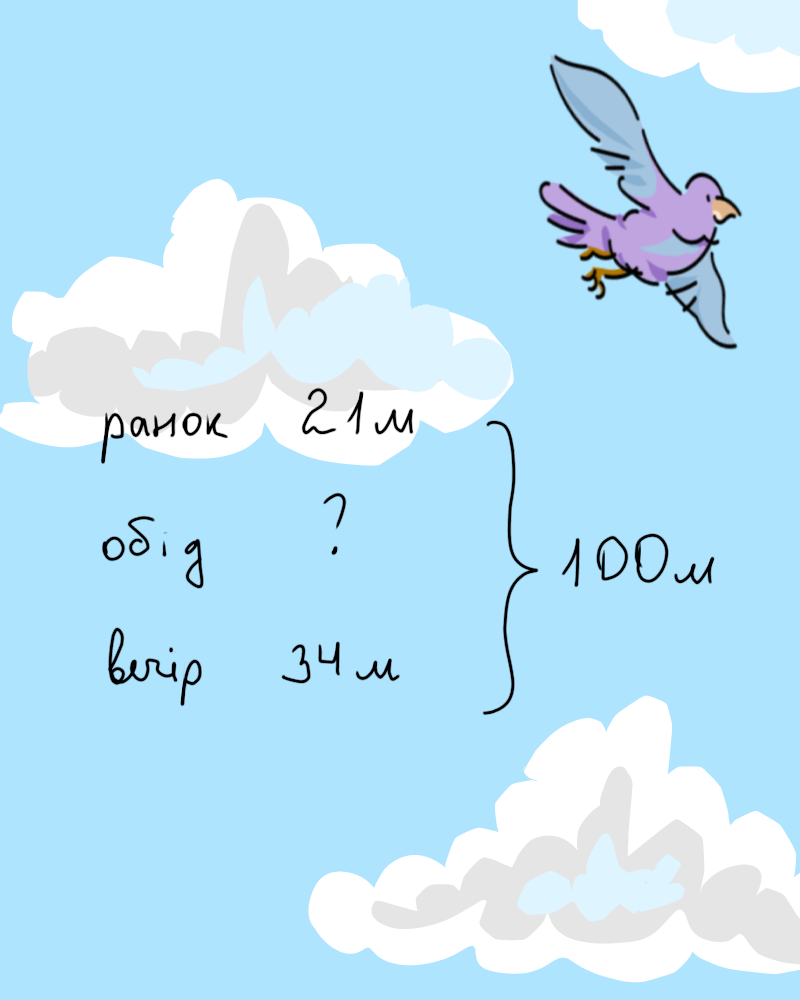 ранок 21м
обід ?
вечір 34м
100м